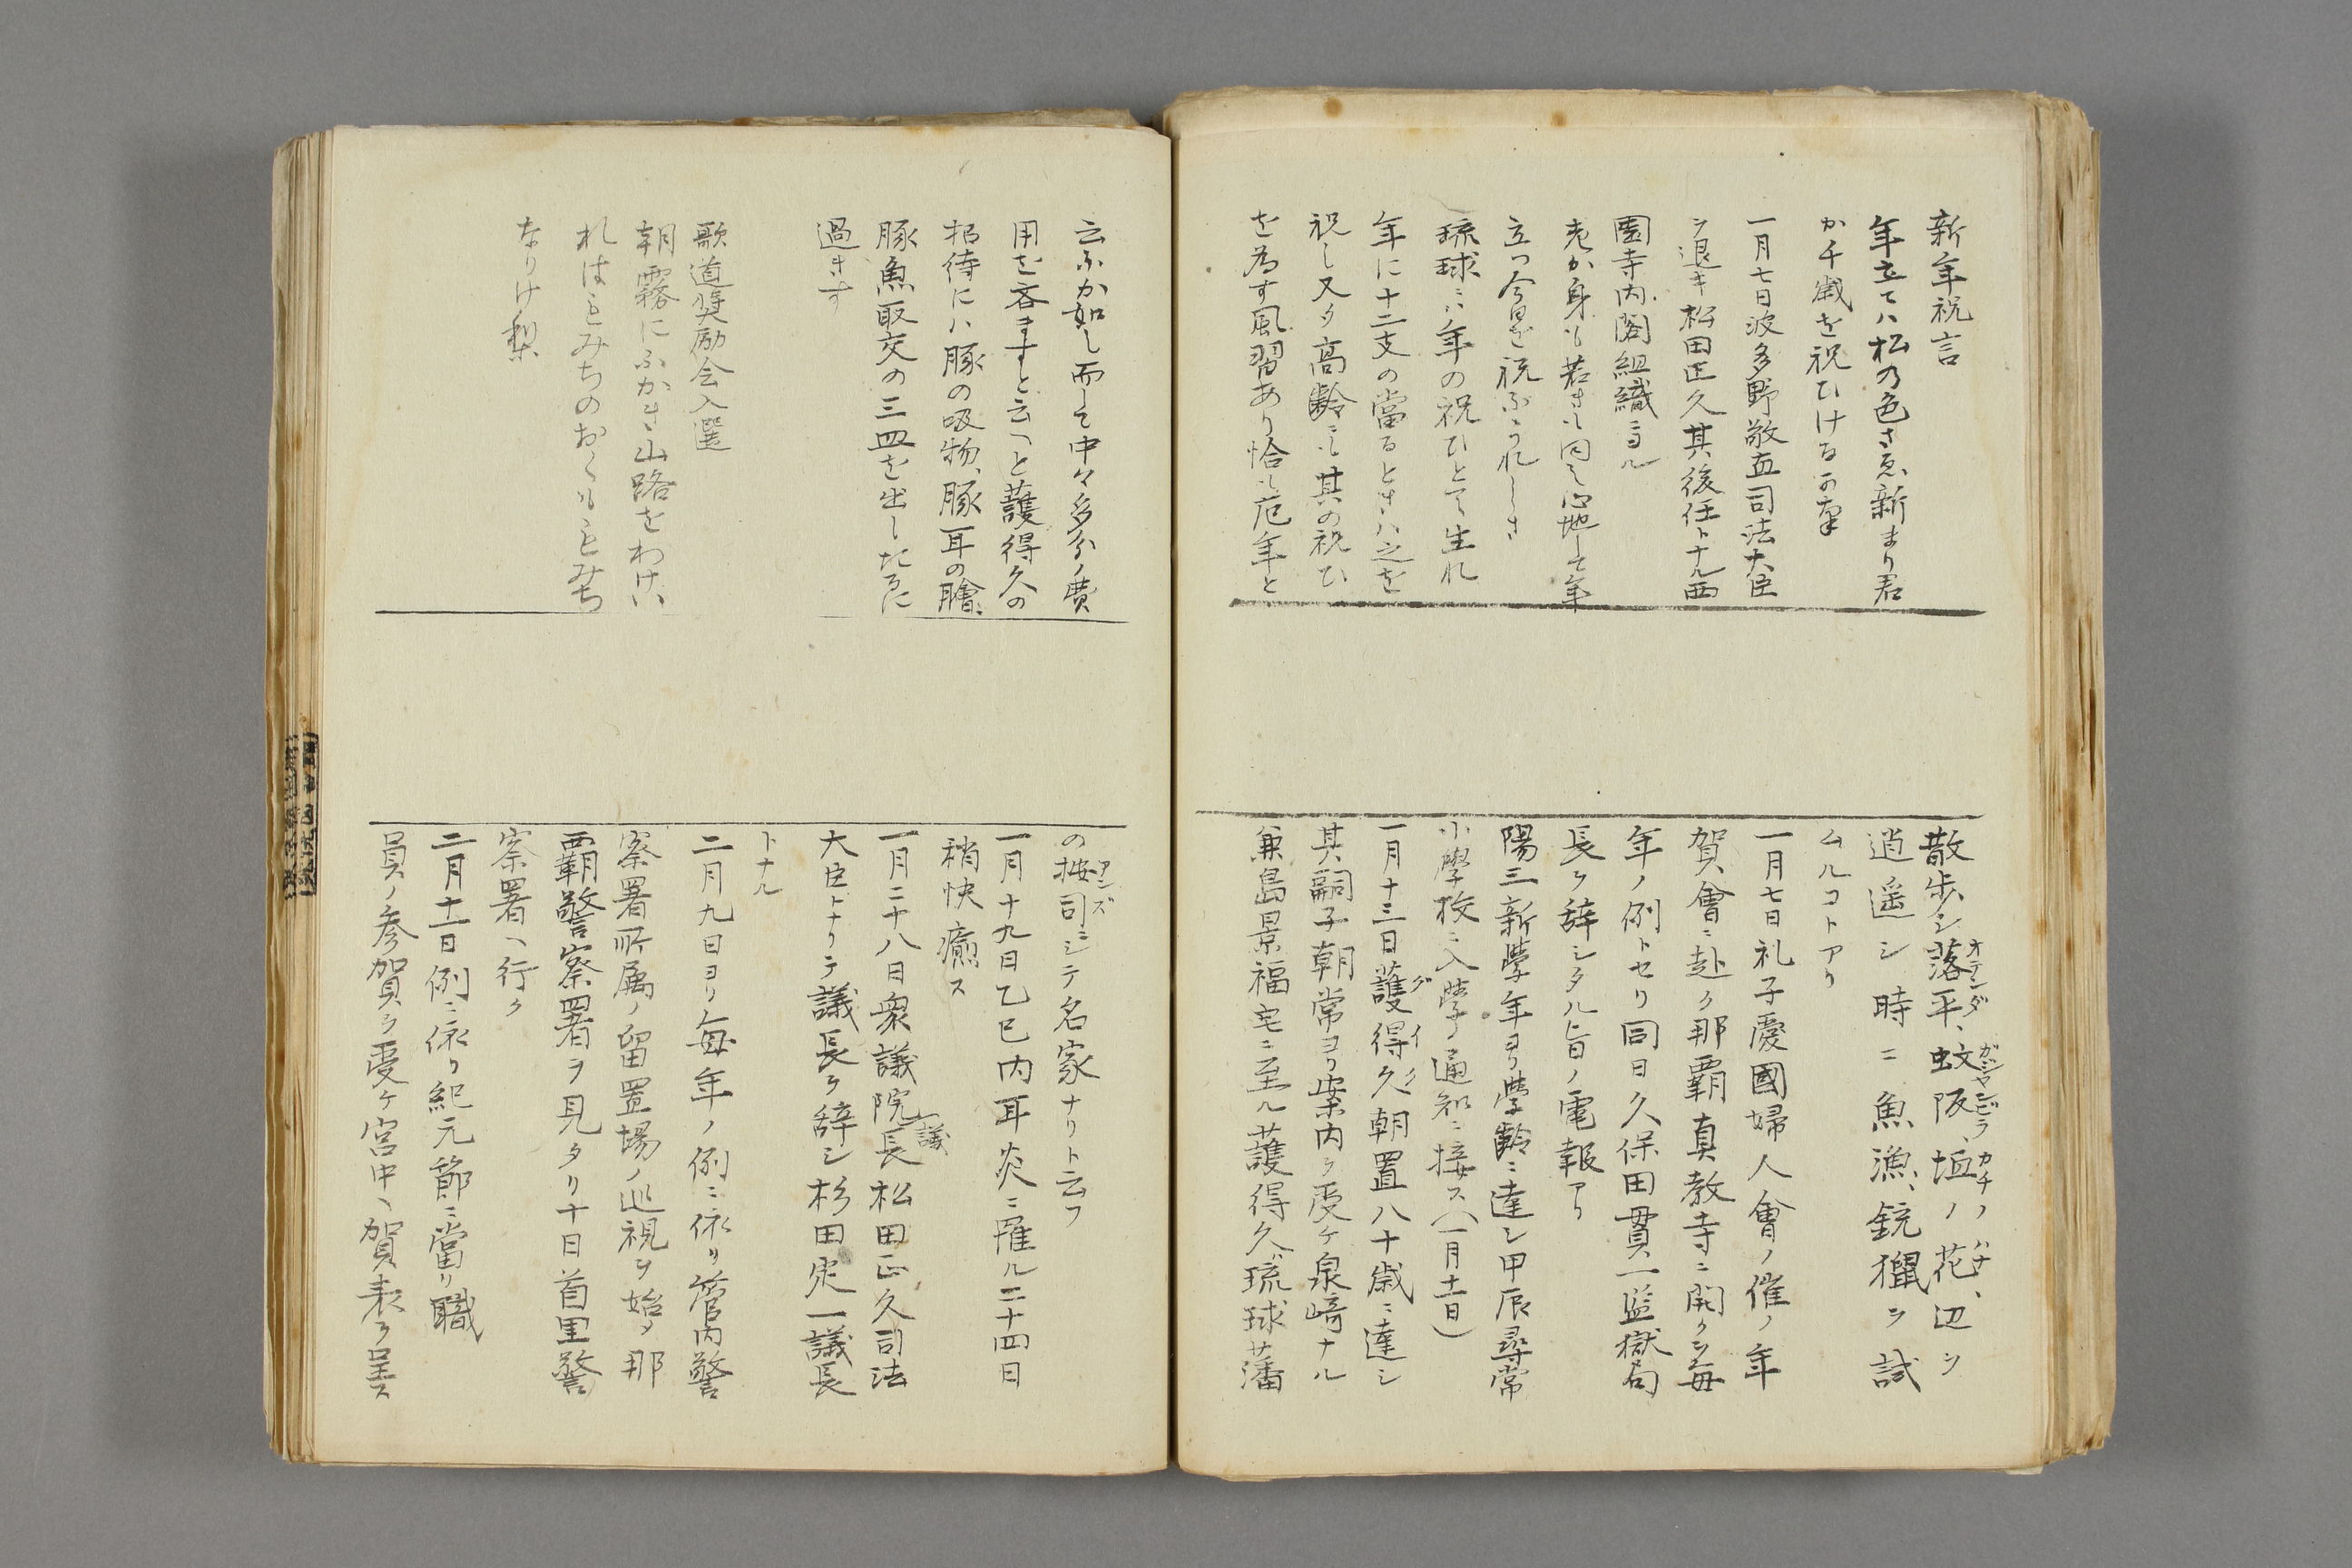 新年祝言
年立てハ松の色さゑ新まり君
か千歳を祝ひける
一月七日波多野敬直司法大臣
ヲ退キ松田正久其後任トナル西
園寺内閣組織ニヨル
老か身も若きも同し心地して年
立つ今日を祝ふうれしさ
琉球ニハ年の祝ひとて生れ
年に十二支の當るときハ之を
祝し又タ高齢ニも其の祝ひ
を為す風習あり恰も厄年と
散歩シ落平、蚊阪、垣ノ花、辺ヲ
オテンダ ガジャンビラ カチノハナ
逍遥シ時ニ魚漁、銃獵ヲ試
ムルコトアリ
一月七日礼子愛國婦人會ノ催ノ年
賀會ニ赴ク那覇真教寺ニ開ク毎
年ノ例トセリ同日久保田貫一監獄局
長ヲ辞シタル旨ノ電報アリ
陽三新學年ヨリ學齢ニ達シ甲辰尋常
小學校ニ入學ノ通知ニ接ス(一月十一日)
一月十三日護得久朝置八十歳ニ達シ
グイク
其嗣子朝常ヨリ案内ヲ受ケ泉﨑ナル
兼島景福宅ニ至ル護得久ハ琉球藩
云ふか如し而して中々多分ノ費
用を吝ますと云へと護得久の
招待にハ豚の吸物、豚耳の膾、
豚魚取交の三皿を出したるに
過きす
歌道奨励会入選
朝霧にふかき山路をわけい
れはもみちのおくももみち
なりけ梨
の按司ニシテ名家ナリト云フ
アンズ
一月十九日乙巳内耳炎ニ罹ル二十四日
稍快癒ス
一月二十八日衆議院議長松田正久司法
大臣トナリテ議長ヲ辞シ杉田定一議長
トナル
二月九日ヨリ毎年ノ例ニ依リ管内警
察署所属ノ留置場ノ巡視ヲ始メ那
覇警察署ヲ見タリ十日首里警
察署ヘ行ク
二月十一日例ニ依リ紀元節ニ當リ職
員ノ参賀ヲ受ケ宮中ヘ賀表ヲ呈ス